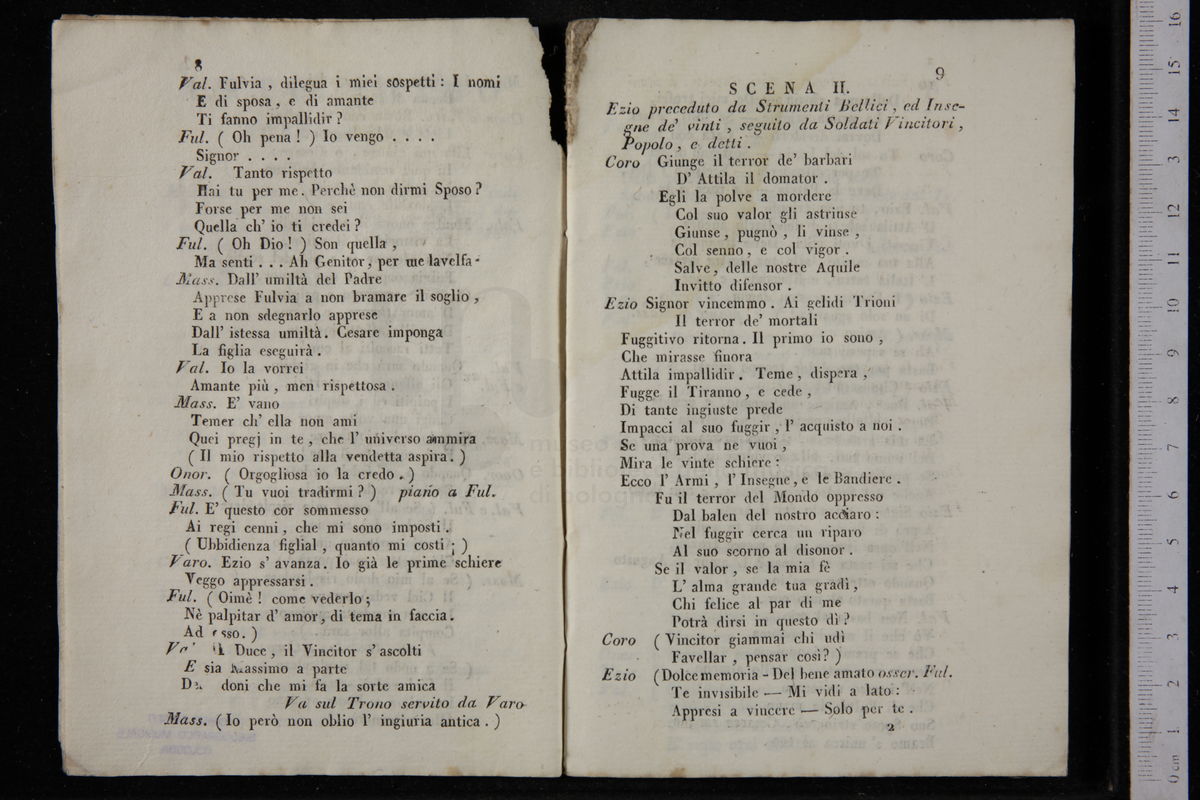 8
Val. Fulvia , dilegua i miei sospetti : I nomi
E di sposa , e di amante
Ti fanno impallidir ?
Ful. ( Oh pena ! ) Io vengo . . . .
Signor . . . .
Val. Tanto rispetto
Hai tu per me . Perchè non dirmi Sposo ?
Forse per me non sei
Quella ch' io ti credei ?
Ful. ( Oh Dio ! ) Son quella ,
Ma senti . . . Ah Genitor , per me lavelfa-
Mass. Dall' umiltà del Padre
Apprese Fulvia a non bramare il soglio ,
E a non sdegnarlo apprese
Dall' istessa umiltà . Cesare imponga
La figlia eseguirà .
Val. Io la vorrei
Amante più , men rispettosa .
Mass. E' vano
Temer ch' ella non ami
Quei pregj in te , che l' universo ammira
( Il mio rispetto alla vendetta aspira . )
Onor. ( Orgogliosa io la credo . )
Mass. ( Tu vuoi tradirmi ? ) piano a Ful.
Ful. E' questo cor sommesso
Ai regi cenni , che mi sono imposti .
( Ubbidienza figlial , quanto mi costi ; )
Varo. Ezio s' avanza . Io già le prime schiere
Veggo appressarsi .
Ful. ( Oimè ! come vederlo ;
Nè palpitar d' amor , di tema in faccia .
Ad sso . )
Duce , il Vincitor s' ascolti
E sia Massimo a parte
doni che mi fa la sorte amica
Va sul Trono servito da Varo
Mass. ( Io però non oblio l' ingiuria antica . )
9
SCENA II.
Ezio preceduto da Strumenti Bellici , ed Inse-
gne de' vinti , seguito da Soldati Vincitori ,
Popolo , e detti .
Coro Giunge il terror de' barbari
D' Attila il domator .
Egli la polve a mordere
Col suo valor gli astrinse
Giunse , pugnò , li vinse ,
Col senno , e col vigor .
Salve , delle nostre Aquile
Invitto difensor .
Ezio Signor vincemmo . Ai gelidi Trioni
Il terror de' mortali
Fuggitivo ritorna . Il primo io sono ,
Che mirasse finora
Attila impallidir . Teme , dispera ,
Fugge il Tiranno , e cede ,
Di tante ingiuste prede
Impacci al suo fuggir , l' acquisto a noi .
Se una prova ne vuoi ,
Mira le vinte schiere :
Ecco l' Armi , l' Insegne , e le Bandiere .
Fu il terror del Mondo oppresso
Dal balen del nostro acciaro :
Nel fuggir cerca un riparo
Al suo scorno al disonor .
Se il valor , se la mia fè
L' alma grande tua gradì ,
Chi felice al par di me
Potrà dirsi in questo dì ?
Coro ( Vincitor giammai chi udì
Favellar , pensar così ? )
Ezio ( Dolce memoria - Del bene amato osser. Ful.
Te invisibile — Mi vidi a lato :
Appresi a vincere — Solo per te .
2